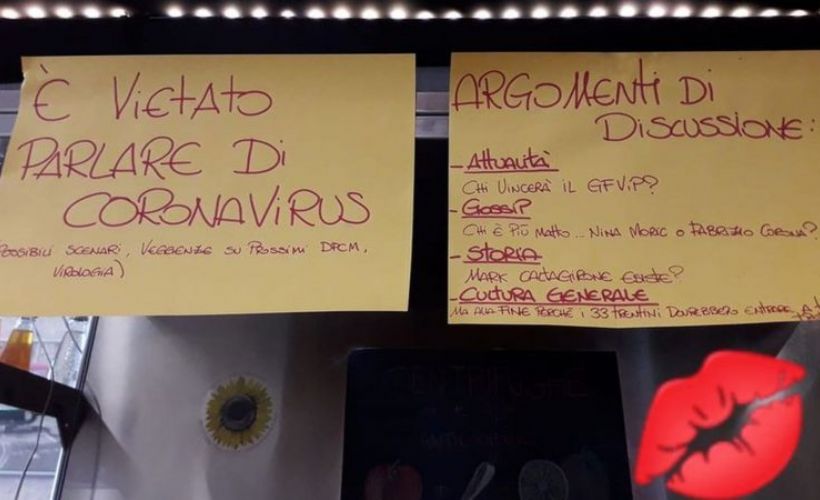 È VIETATO
PARLARE DI
CORONAVIRUS
POSSIBILI SCENARI, VEGGENZE SU PROSSIMI DPCM,
VIROLOGIA)
ARGOMENTI DI
DISCUSSIONE:
- ATTUALITÀ
CHI VINCERÀ IL GFVIP?
- GOSSIP
CHI È PIÙ MATTO... NINA MORIC O FABRIZIO CORONA?
- STORIA
MARK CALTAGIRONE ESISTE?
- CULTURA GENERALE
MA ALLA FINE PERCHÈ I 33 TRENTINI DOVREBBERO ENTRARE A
CENTRIFUGHE